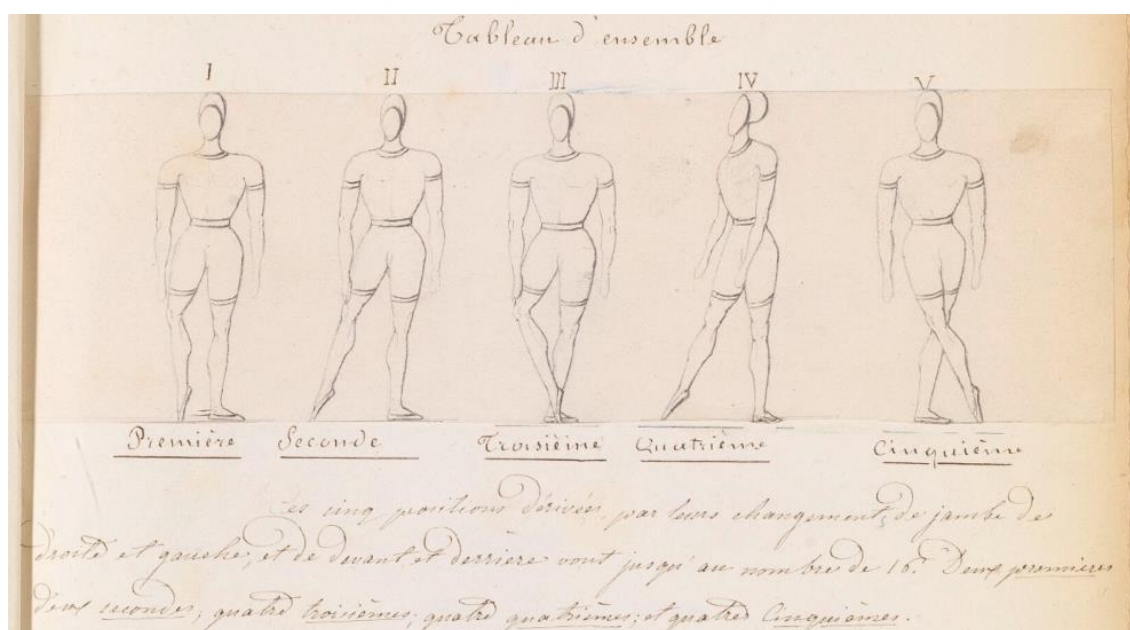 Tableau d'ensemble
I II III IV V
Première Seconde Troisième Quatrième Cinquième
Ces cinq positions dérivées par leurs changements de jambe de
droite et gauche, et de devant et derrière vont jusqu'au nombre de 16. Deux premières
deux secondes; quatre troisièmes; quatre quatrièmes; et quatre Cinquièmes.